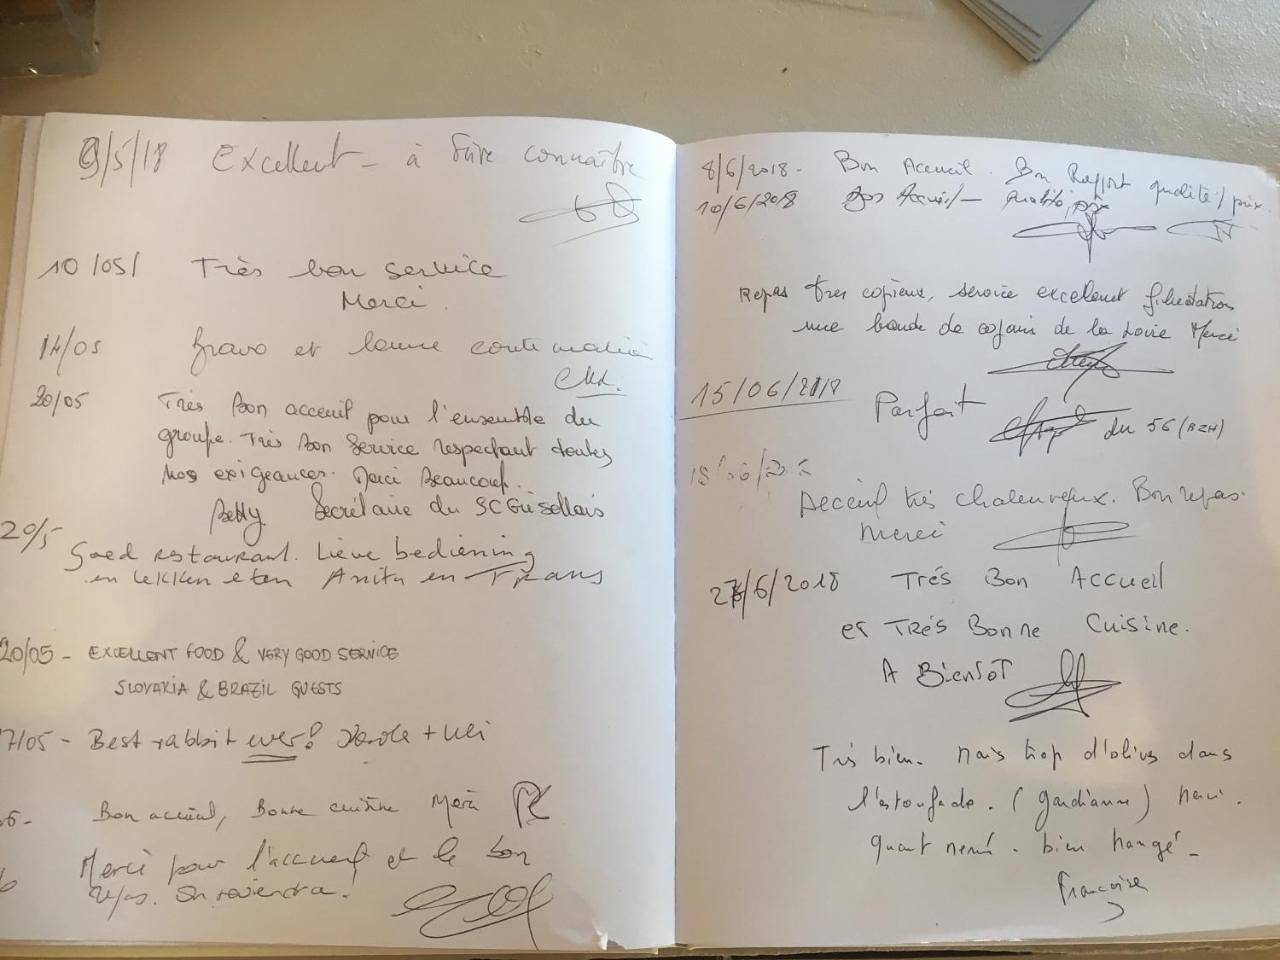 9/5/18 Excellent - à faire connaître
10/05/ Très bon service
Merci.
14/05 Bravo et bonne continuation
20/05 Très Bon acceuil pour l'ensemble du
groupe. Très Bon Service respectant toutes
Nos exigeances. Merci Beaucoup.
Betty. Secrétaire du SC Grésellois
20/5 Goed restaurant. Lieve bediening
en lekker eten Anita en Frans
20/05 - EXCELLENT FOOD & VERY GOOD SERVICE
SLOVAKIA & BRAZIL GUESTS
7/05 - Best rabbit ever!
Bon accueil, Bonne cuisine Merci
Merci pour l'accueil et le bon
repas. On reviendra!
8/6/2018 - Bon Accueil. Bon Rapport qualité/prix.
10/6/2018 Bon Accueil - qualité prix
Repas tres copieux, service excellent félicitations
une bande de copain de la Loire Merci
15/06/2018 Parfait
du 56 (BZH)
Acceuil très chaleureux. Bon repas.
Merci
27/6/2018 Trés Bon Accueil
et Trés Bonne Cuisine.
A Bientot
Très bien. Mais trop d'olives dans
l'estoufade. (gardianne) merci.
quant même. bien mangé -
Françoise